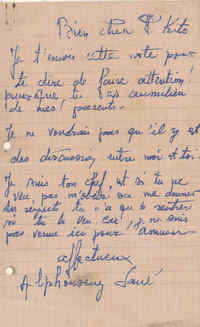 Bien cher P. Kito
Je t'envoi cette note pour
te dire de faire attention!
parce que tu es au milieu
de mes parents.
Je ne voudrais pas qu'il y ait
des discussions entre moi et toi.
Je suis ton chef, et si tu ne
veu pas m'obéir ou me donner
des respect tu n'a qu'à rentrer
si tu le veu car, je ne suis
pas venue ici pour amuser
affectueux
Alphonseny